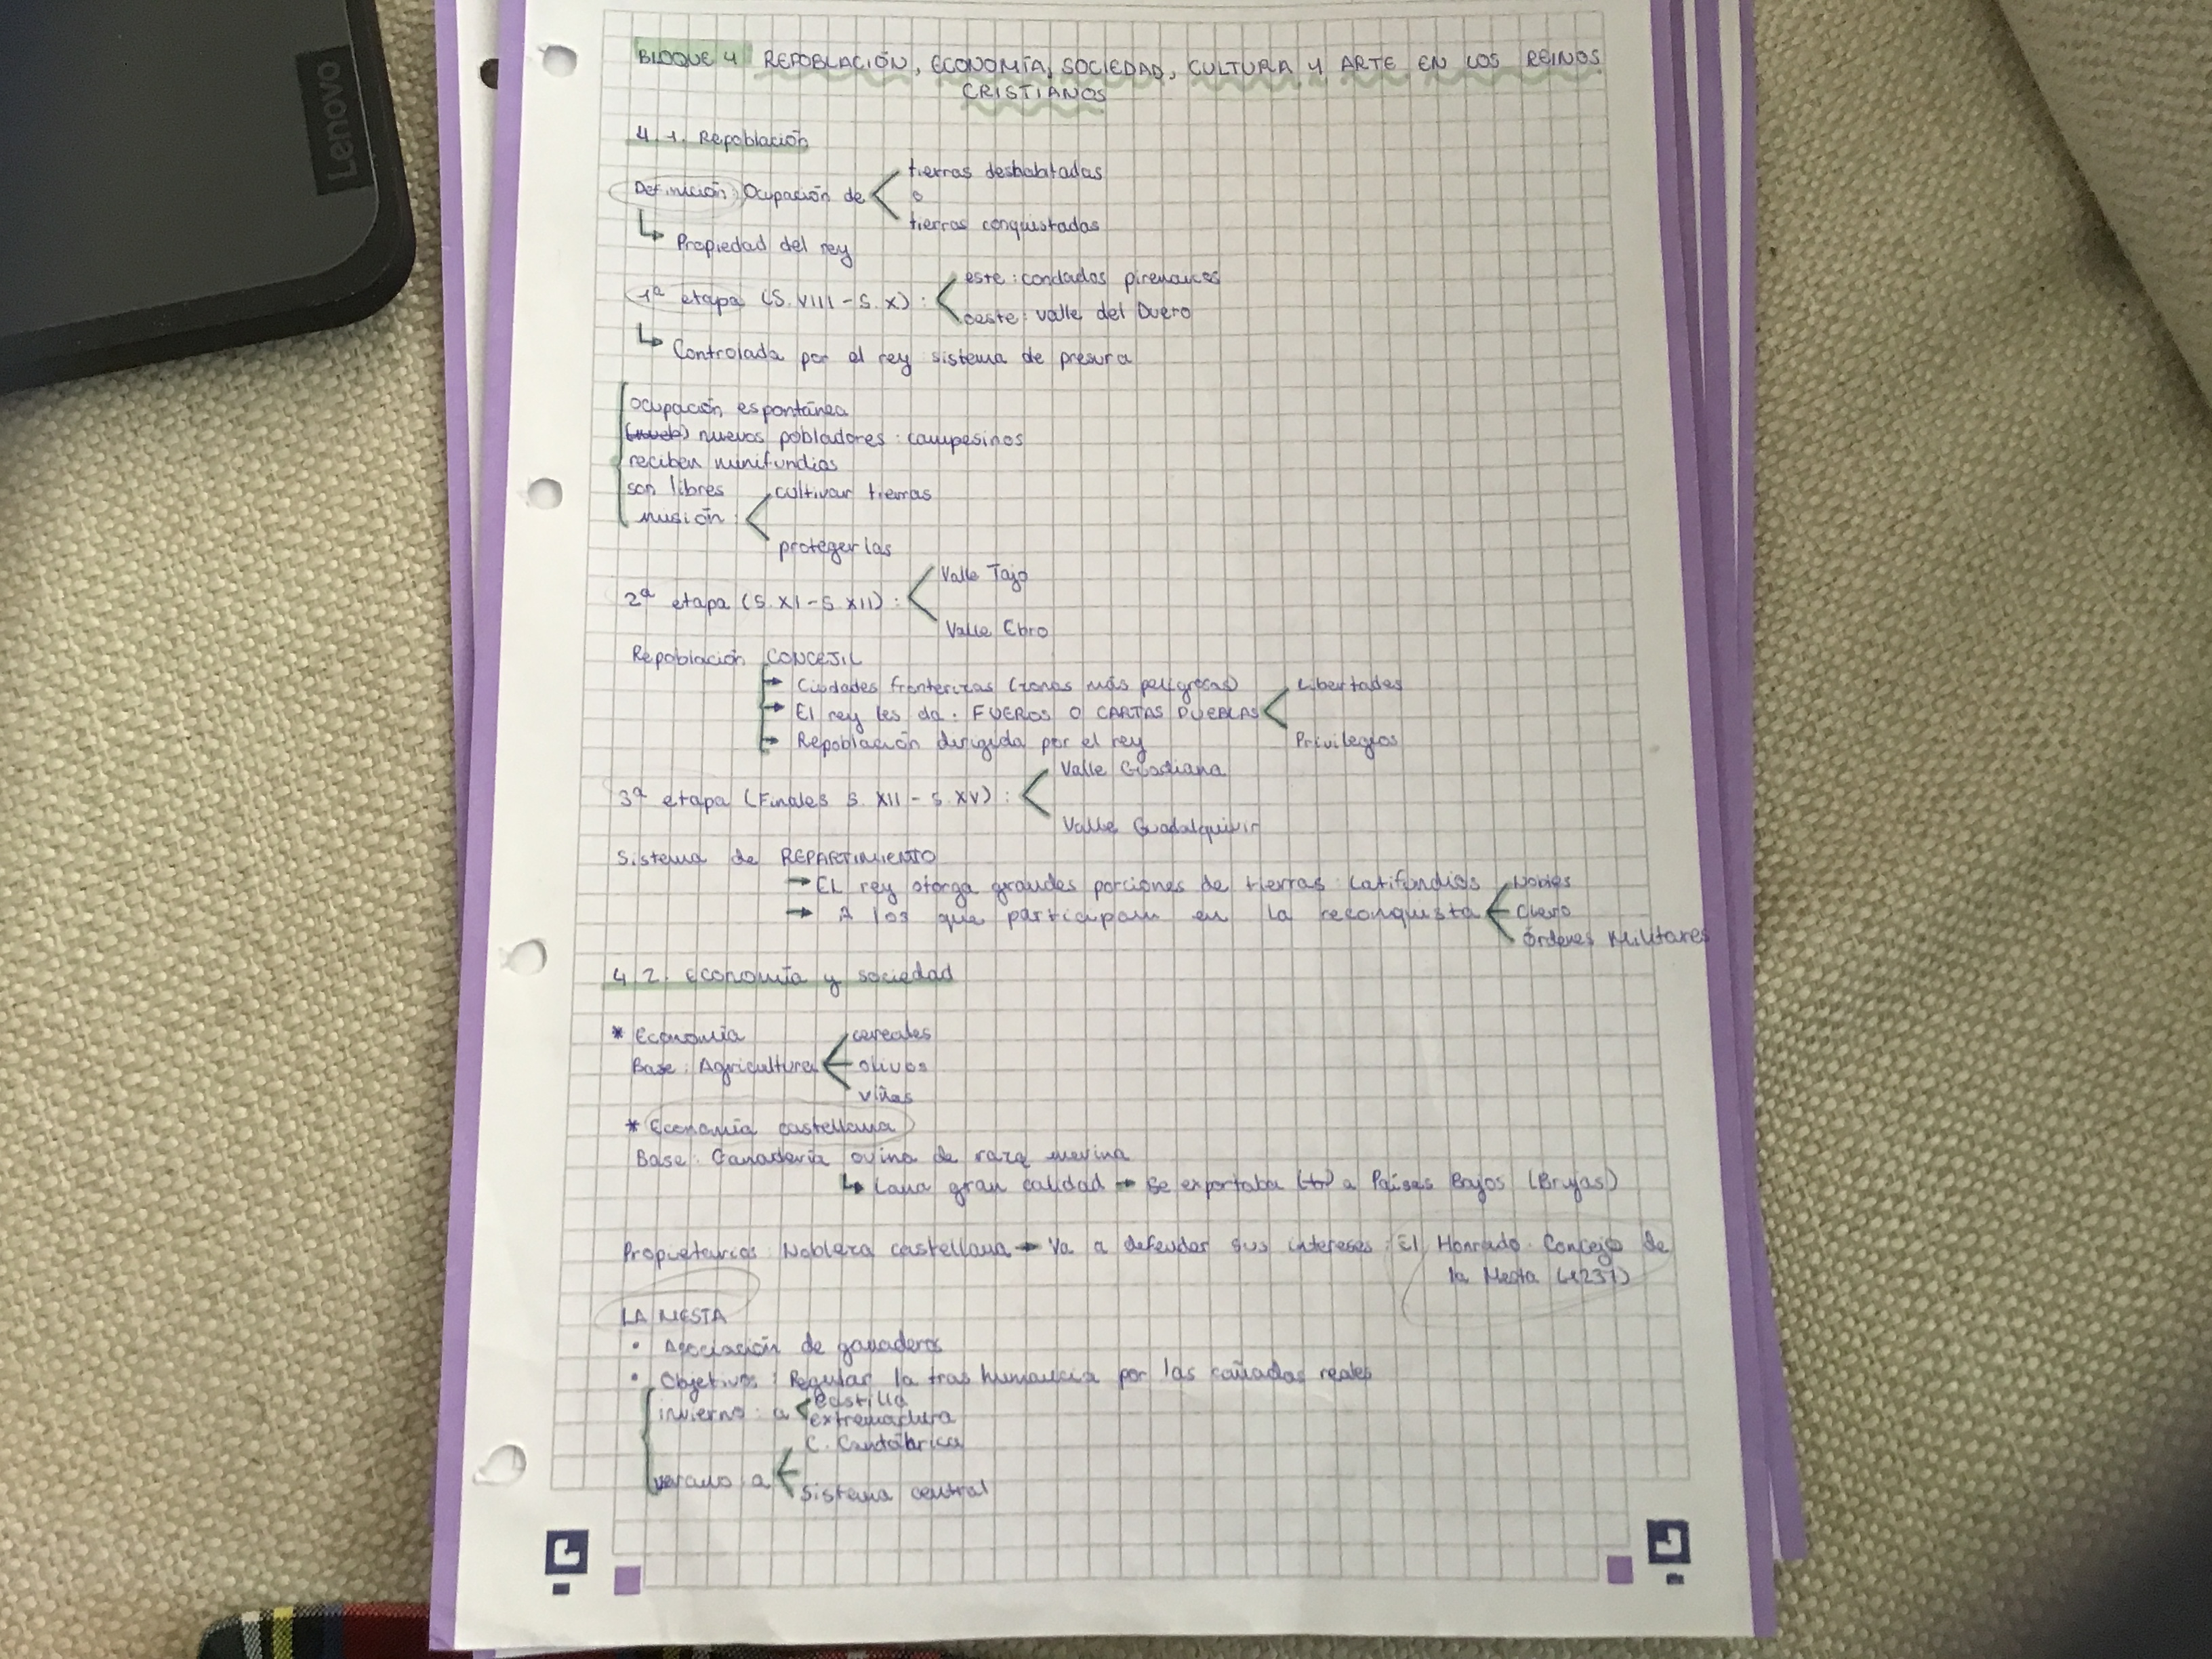 Lenovo
BLOQUE 4 REPOBLACIÓN, ECONOMÍA, SOCIEDAD, CULTURA Y ARTE EN LOS REINOS
CRISTIANOS
4.1. Repoblación
Definición: Ocupación de
tierras deshabitadas
o
tierras conquistadas
Propiedad del rey
1ª etapa (S. VIII - S. X):
este: condados pirenaicos
oeste: valle del Duero
Controlada por el rey sistema de presura
Ocupación espontánea
nuevos pobladores: campesinos
reciben minifundios
son libres
misión:
cultivar tierras
protegerlas
2ª etapa (S. XI - S. XII):
Valle Tajo
Valle Ebro
Repoblación CONCEJIL
→ Ciudades fronterizas (zonas más peligrosas)
→ El rey les da: FUEROS O CARTAS PUEBLAS
Libertades
Privilegios
→ Repoblación dirigida por el rey
3ª etapa (Finales S. XII - S. XV):
Valle Guadiana
Valle Guadalquivir
Sistema de REPARTIMIENTO
→ EL rey otorga grandes porciones de tierras: Latifundios
→ A los que participan en la reconquista
Nobles
Clero
Órdenes Militares
4.2. Economía y sociedad
* Economía
Base: Agricultura
cereales
olivos
viñas
* Economía castellana
Base: Ganadería ovina de raza merina
Lana gran calidad → Se exportaba a Países Bajos (Brujas)
Propietarios: Nobleza castellana → Va a defender sus intereses: El Honrado Concejo de
la Mesta (1237)
LA MESTA
• Asociación de ganaderos
• Objetivos: Regular la trashumancia por las cañadas reales
invierno: a
Castilla
extremadura
verano: a
C. Cantábrica
Sistema central